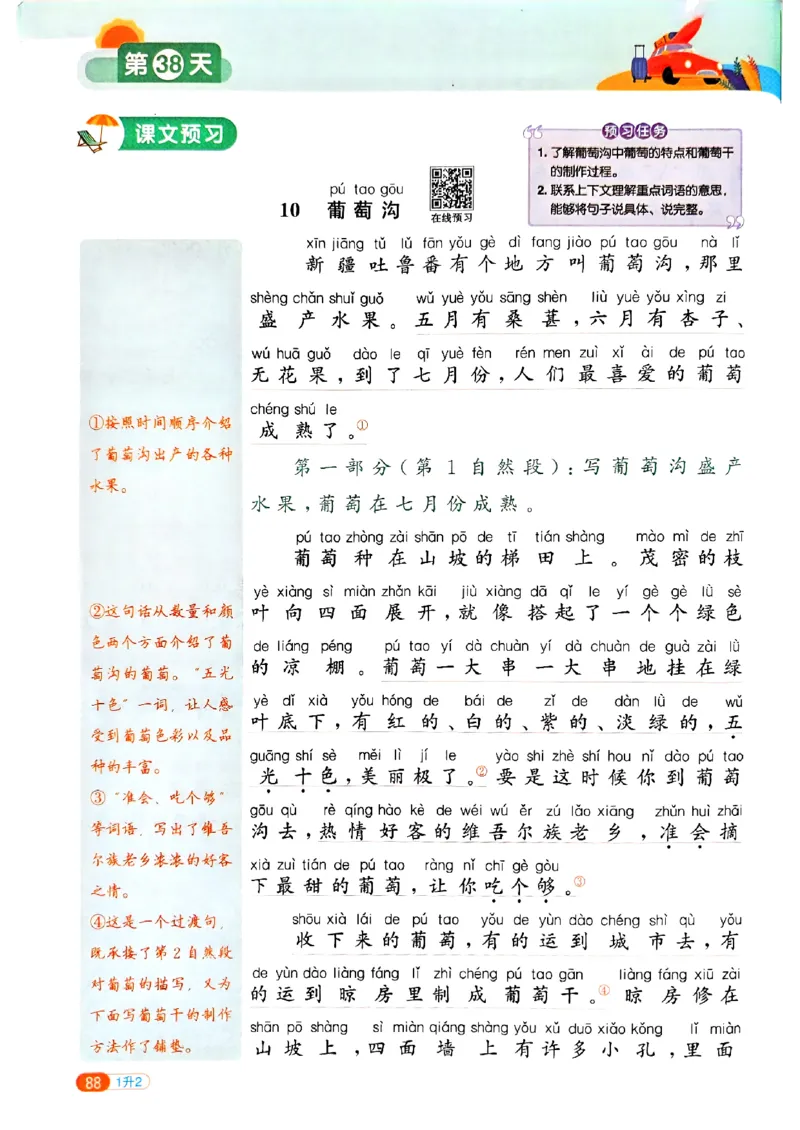 第38天
课文预习
预习任务
1. 了解葡萄沟中葡萄的特点和葡萄干
的制作过程。
2. 联系上下文理解重点词语的意思,
能够将句子说具体、说完整。
pú tao gōu
10 葡萄沟
在线预习
xīn jiāng tǔ lǔ fān yǒu gè dì fang jiào pú tao gōu nà lǐ
新疆吐鲁番有个地方叫葡萄沟,那里
shèng chǎn shuǐ guǒ wǔ yuè yǒu sāng shèn liù yuè yǒu xìng zi
盛产水果。五月有桑葚,六月有杏子、
wú huā guǒ dào le qī yuè fèn rén men zuì xǐ ài de pú tao
无花果,到了七月份,人们最喜爱的葡萄
chéng shú le
成熟了。①
第一部分(第1自然段):写葡萄沟盛产
水果,葡萄在七月份成熟。
pú tao zhòng zài shān pō de tī tián shàng mào mì de zhī
葡萄种在山坡的梯田上。茂密的枝
yè xiàng sì miàn zhǎn kāi jiù xiàng dā qǐ le yí gè gè lǜ sè
叶向四面展开,就像搭起了一个个绿色
de liáng péng pú tao yí dà chuàn yí dà chuàn de guà zài lǜ
的凉棚。葡萄一大串一大串地挂在绿
yè dǐ xià yǒu hóng de bái de zǐ de dàn lǜ de wǔ
叶底下,有红的、白的、紫的、淡绿的,五
guāng shí sè měi lì jí le yào shi zhè shí hou nǐ dào pú tao
光十色,美丽极了。②要是这时候你到葡萄
gōu qù rè qíng hào kè de wéi wú ěr zú lǎo xiāng zhǔn huì zhāi
沟去,热情好客的维吾尔族老乡,准会摘
xià zuì tián de pú tao ràng nǐ chī gè gòu
下最甜的葡萄,让你吃个够。③
shōu xià lái de pú tao yǒu de yùn dào chéng shì qù yǒu
收下来的葡萄,有的运到城市去,有
de yùn dào liàng fáng lǐ zhì chéng pú tao gān liàng fáng xiū zài
的运到晾房里制成葡萄干。④晾房修在
shān pō shàng sì miàn qiáng shàng yǒu xǔ duō xiǎo kǒng lǐ miàn
山坡上,四面墙上有许多小孔,里面
①按照时间顺序介绍
了葡萄沟出产的各种
水果。
②这句话从数量和颜
色两个方面介绍了葡
萄沟的葡萄。“五光
十色”一词,让人感
受到葡萄色彩以及品
种的丰富。
③“准会、吃个够”
等词语,写出了维吾
尔族老乡浓浓的好客
之情。
④这是一个过渡句,
既承接了第2自然段
对葡萄的描写,又为
下面写葡萄干的制作
方法作了铺垫。
88 1升2